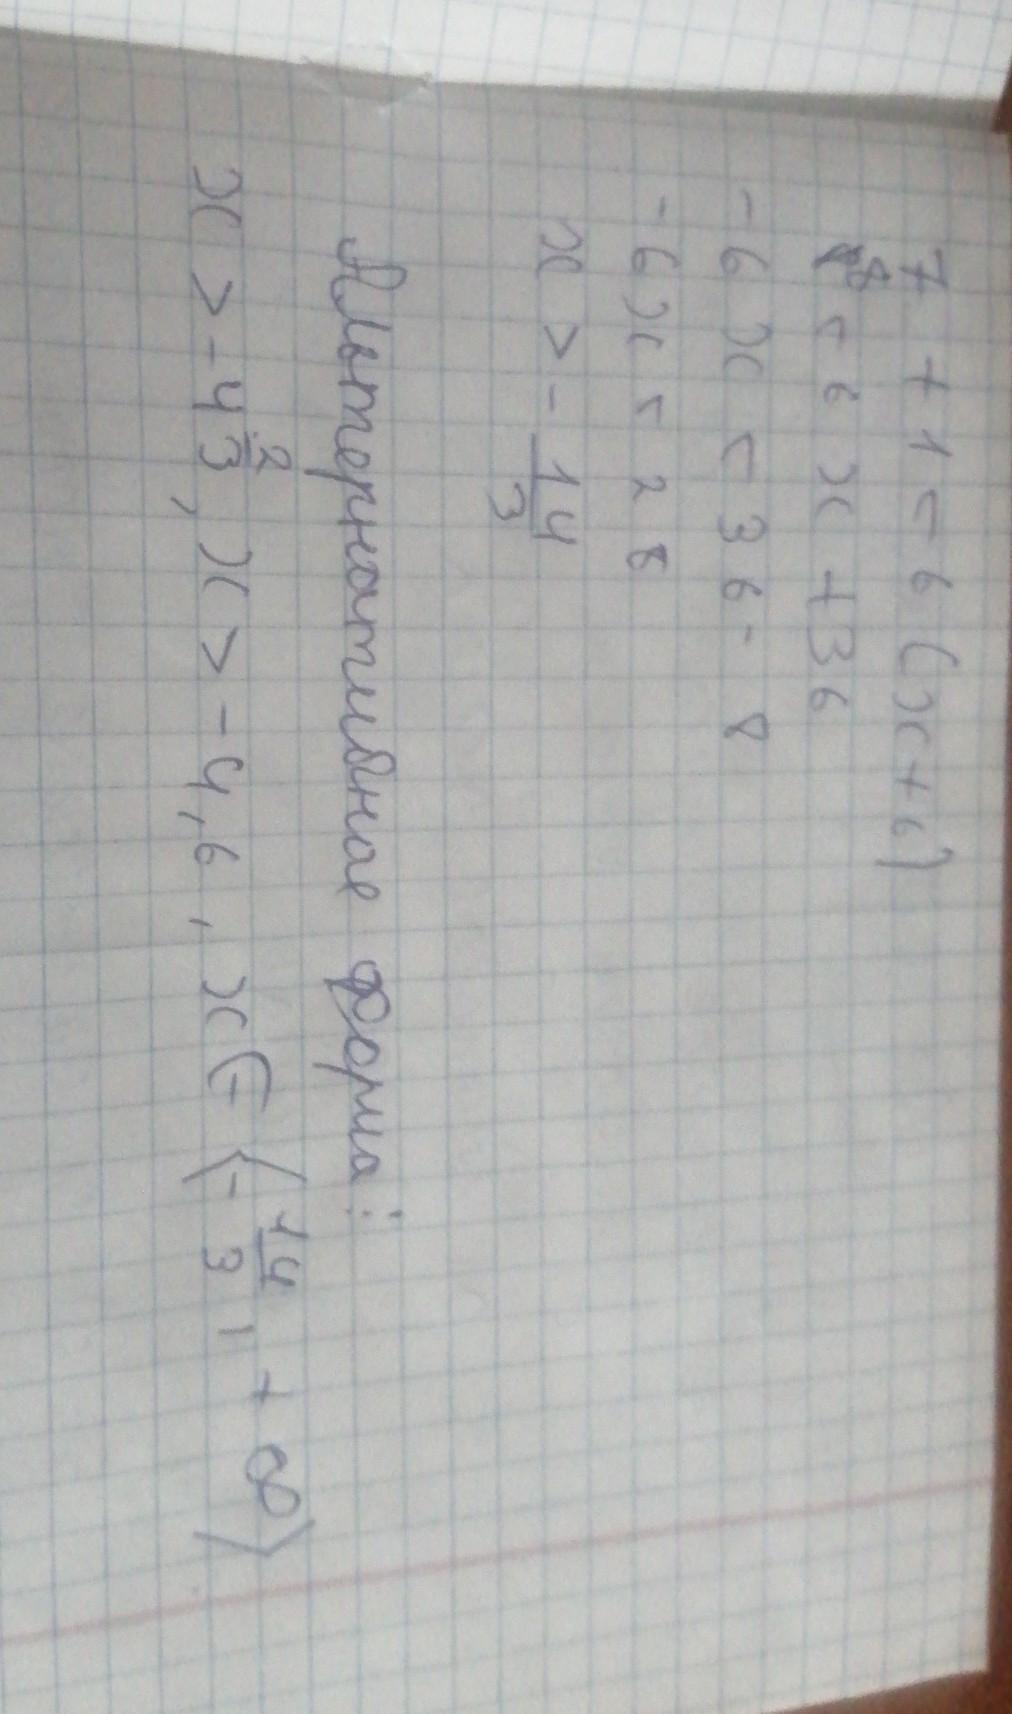 7 + 1 < 6 (x + 6)
8 < 6 x + 36
- 6 x < 36 - 8
- 6 x < 28
x > - 14/3
Альтернативное форма:
x > - 4 2/3, x > - 4,6, x ∈ ⟨- 14/3, + ∞⟩